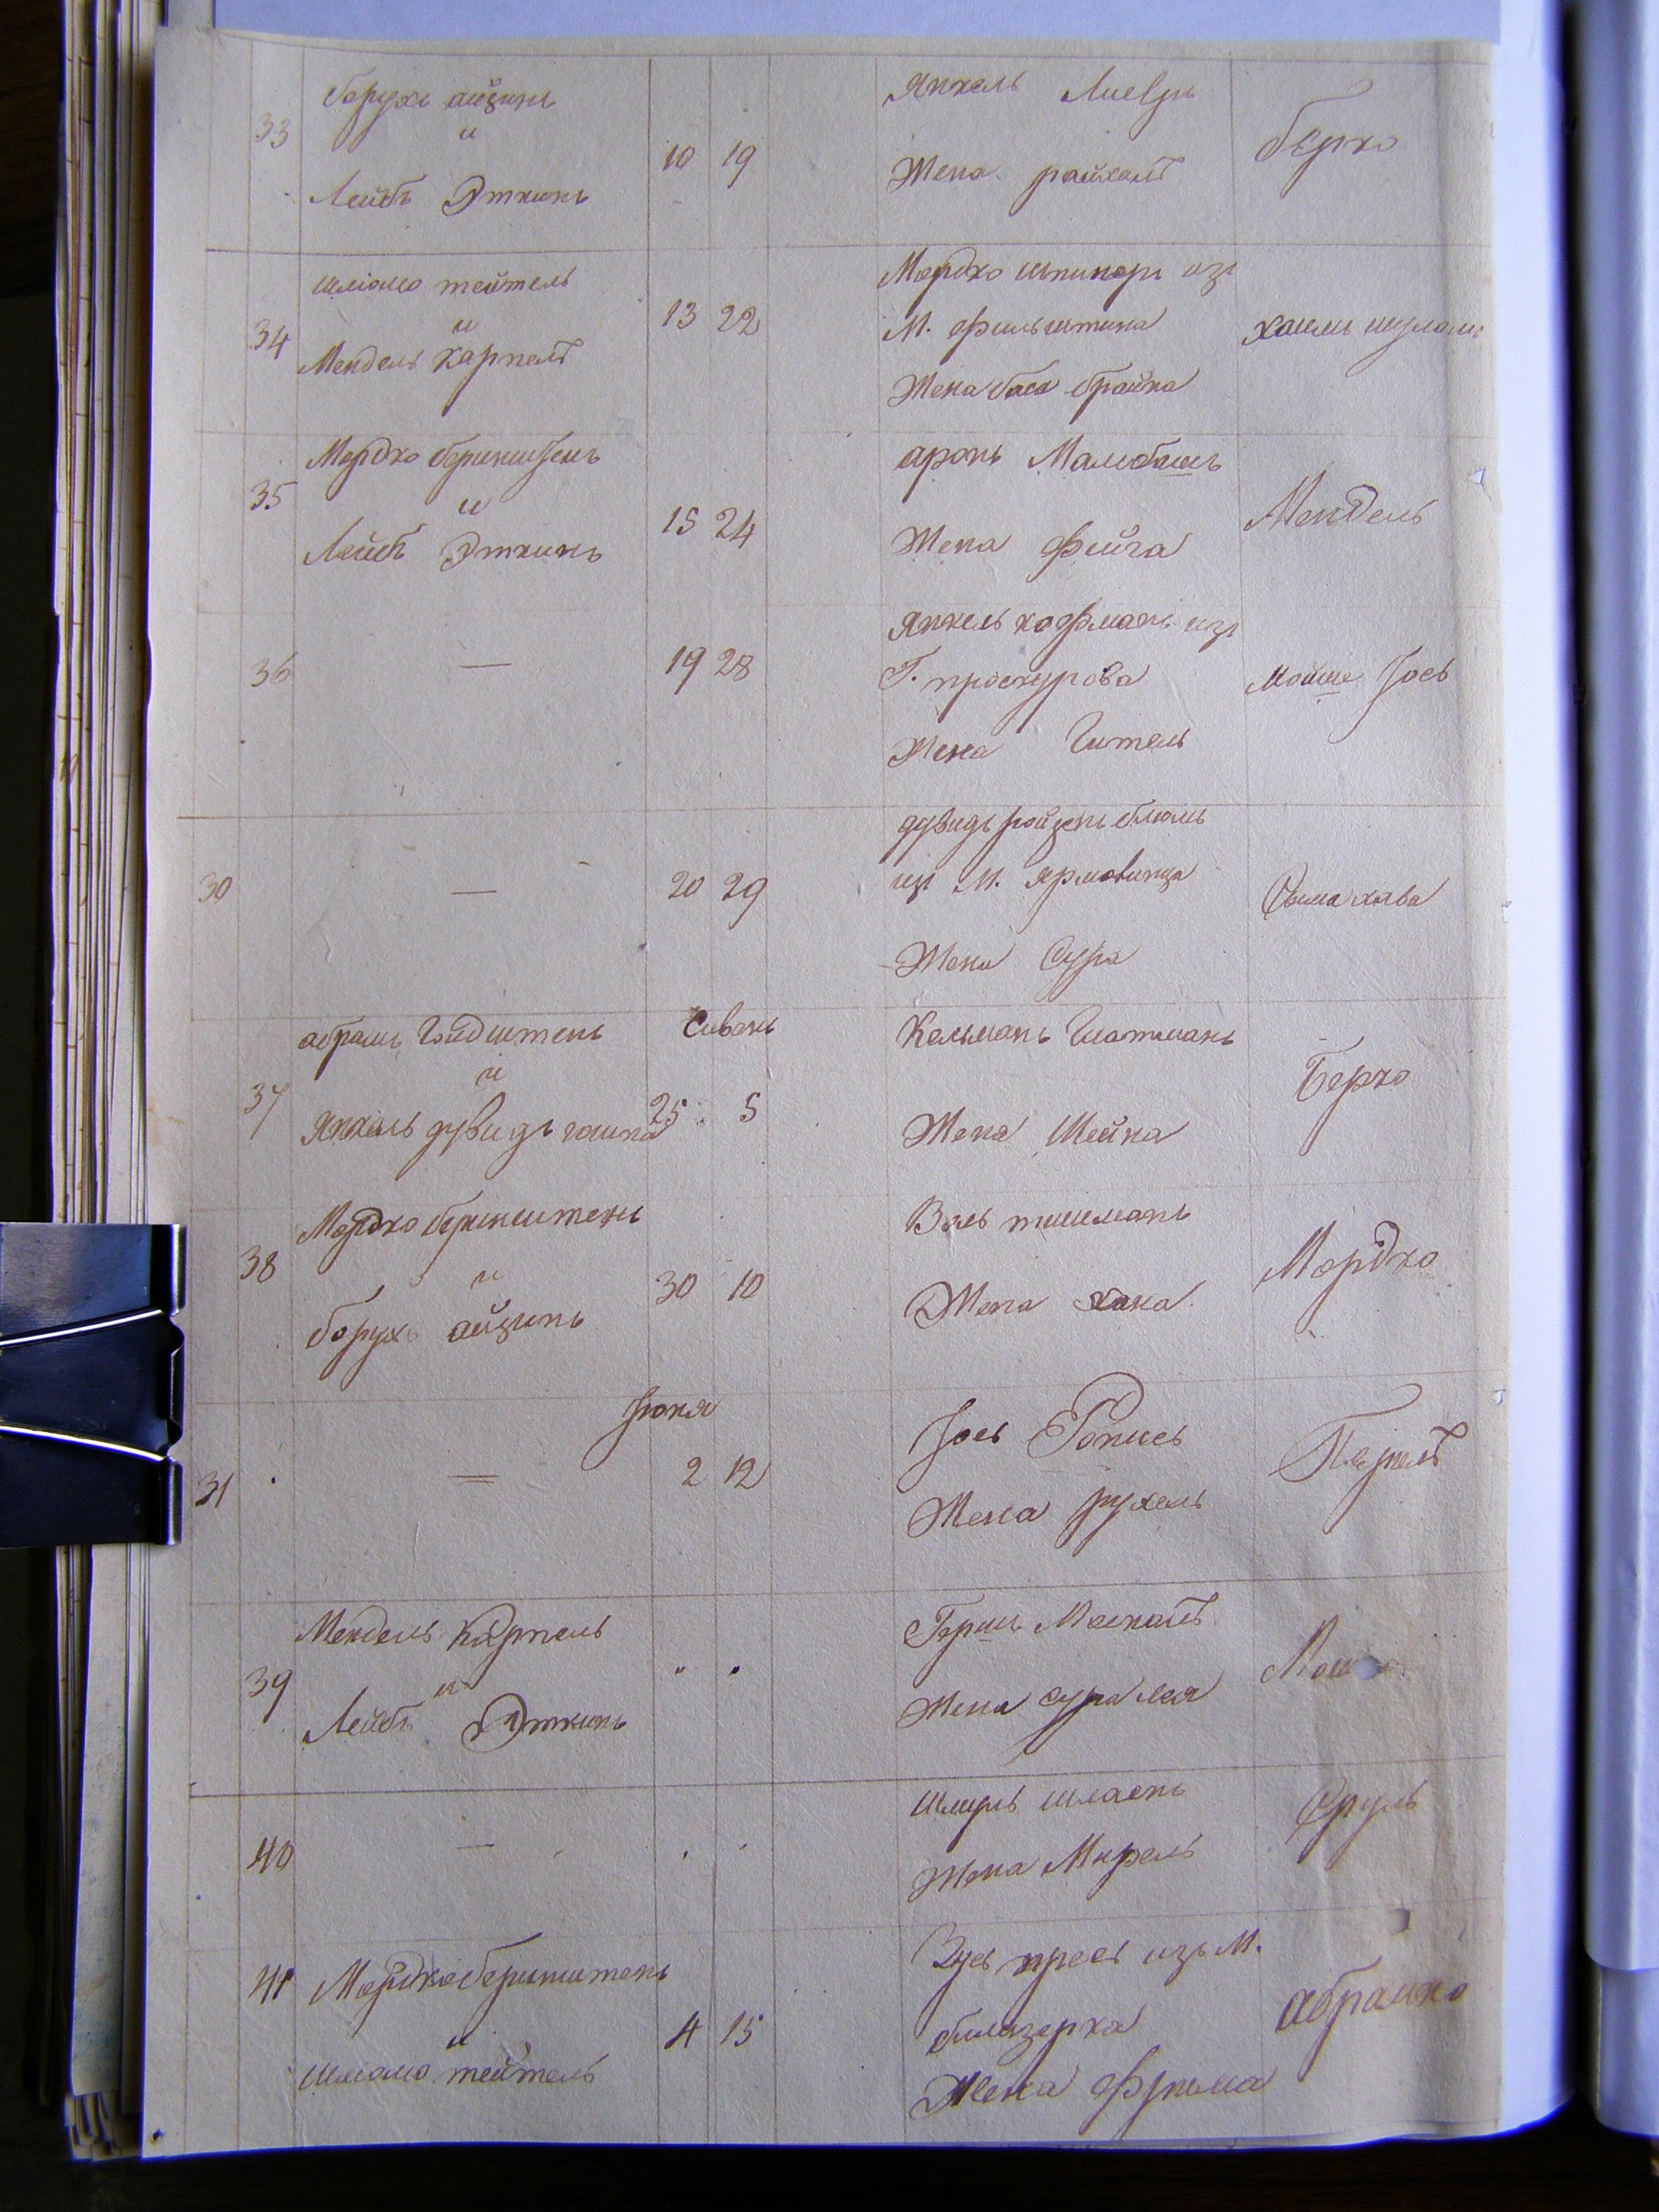 33
борухъ айзинъ
и
Лейбъ Эткинъ
10 19
Янкель
Жена райхель
берко
34
шліомо тейтель
и
Мендель карпель
13 22
Мордко шпинаръ изъ
М. фильштина
Жена бася брайна
хаимъ шулимъ
35
Мордко
и
Лейбъ Эткинъ
15 24
аронъ
Жена фейга
Мендель
36
—
19 28
Янкель кофманъ изъ
Г. проскурова
Жена Гитель
Мошше Іось
30
—
20 29
дувидъ ройзенъблюмъ
изъ М. ярмолинца
Жена Сура
Сыма хава
37
абрамъ
и
Янкель дувидъ
Сивенъ
25 5
Кельманъ Глатманъ
Жена Шейна
Берко
38
Мордко беринштенъ
и
борухъ айзинъ
30 10
Воль тишманъ
Жена хана
Мордко
31
—
Іюня
2 12
Іось
Жена рухель
Перель
39
Мендель Карпель
и
Лейбъ Эткинъ
" "
Гершъ
Жена сура лея
40
—
" "
Шмуль
Жена Мирель
Сруль
41
Мордко беринштенъ
и
шліомо тейтель
4 15
изъ М.
билазерка
Жена фрима
абрамко